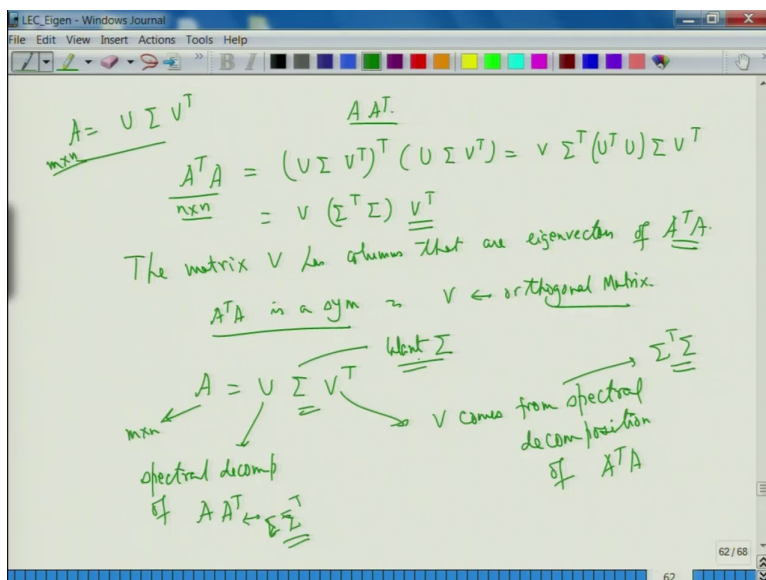 LEC_Eigen - Windows Journal
File Edit View Insert Actions Tools Help
A = U Σ V^T
m×n
A A^T.
A^T A = (U Σ V^T)^T (U Σ V^T) = V Σ^T (U^T U) Σ V^T
n×n
= V (Σ^T Σ) V^T
The matrix V has columns that are eigenvectors of A^T A.
A^T A is a sym ⇒ V ← orthogonal Matrix.
Want Σ
Σ^T Σ
A = U Σ V^T
m×n
V comes from spectral
decomposition
of A^T A
spectral decomp
of A A^T ← Σ Σ^T
62 / 68
62